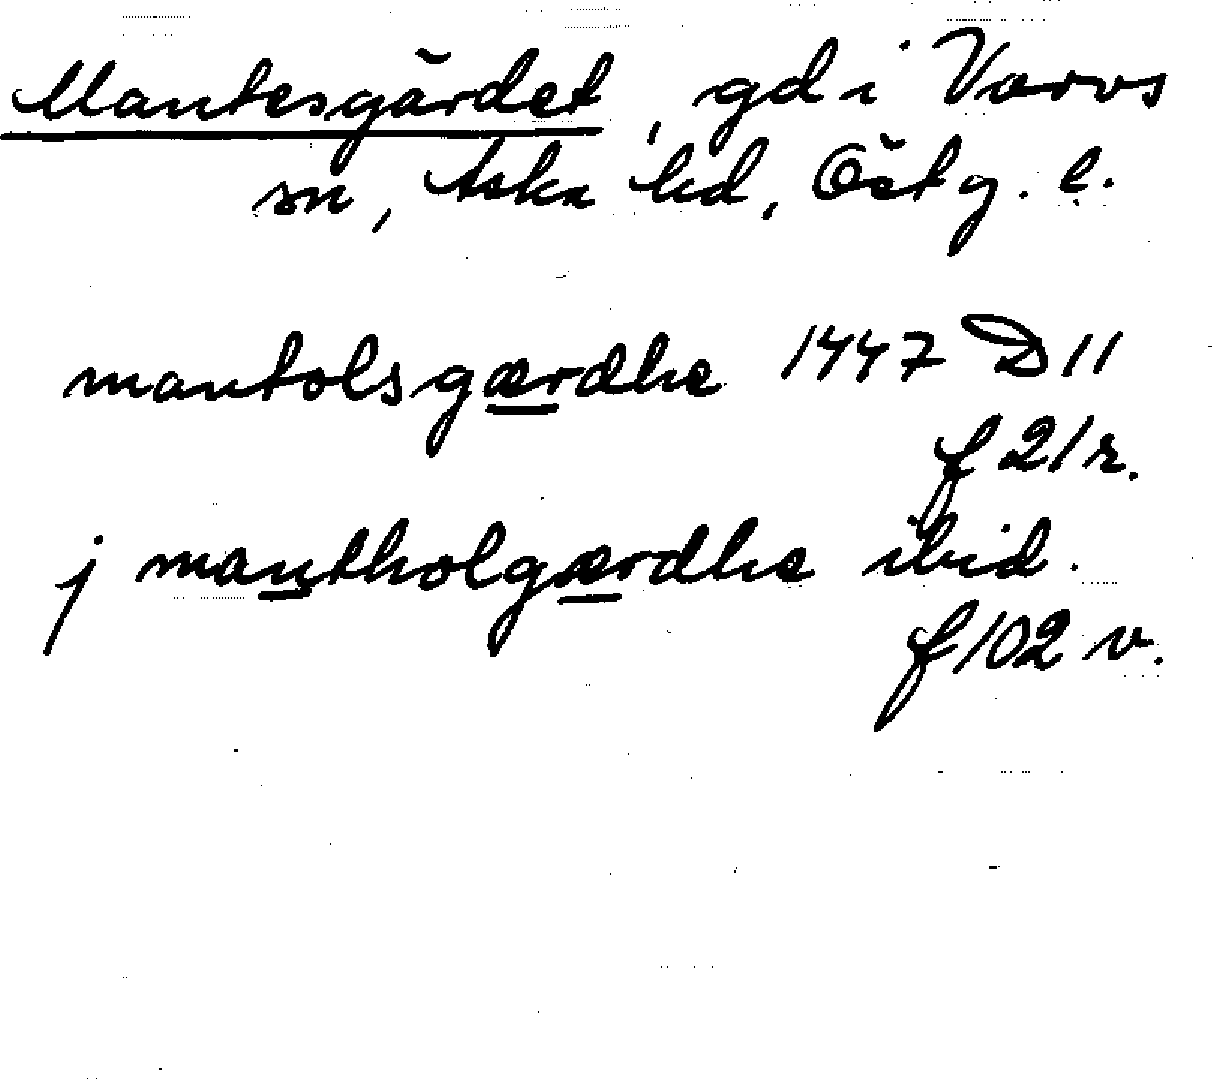 Mantesgärdet, gd i Varvs
sn, Aska hd, Östg. l.
mantolsgærdhe 1447 D11
f 21r.
j mantholgærdhe ibid.
f 102 v.